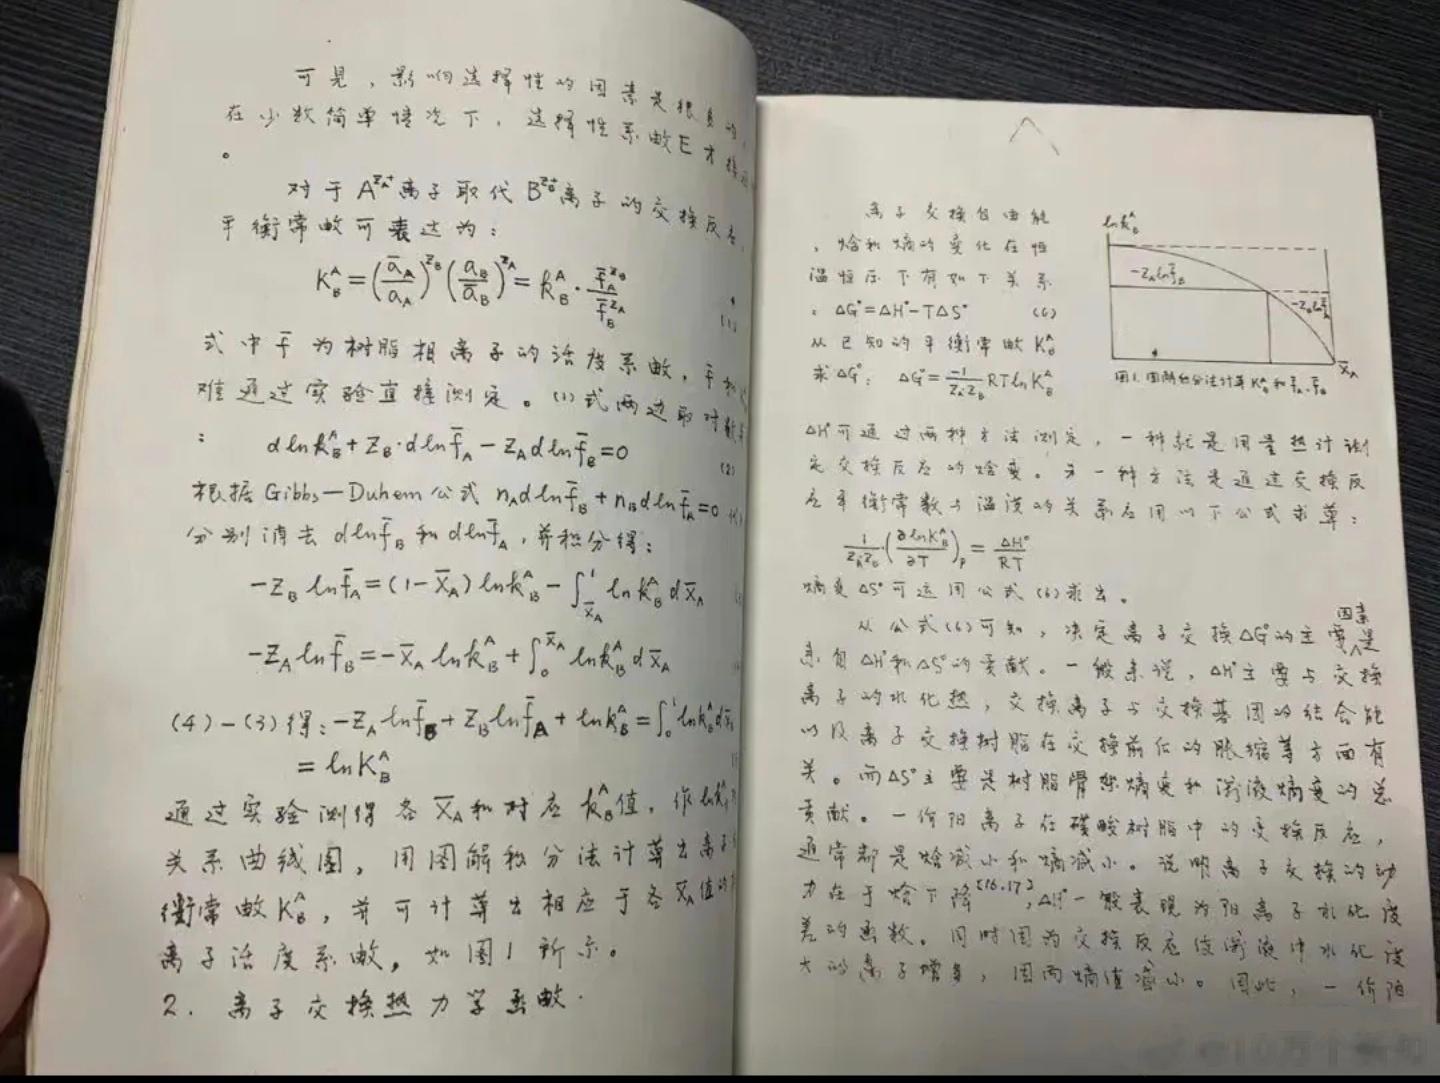 可见，影响选择性的因素是很多的，
在少数简单情况下，选择性系数E才
。
对于A^{Z_A^+}离子取代B^{Z_B^+}离子的交换反应，
平衡常数可表达为：
K_B^A=(ā_A/a_A)^{Z_B}(a_B/ā_B)^{Z_A}=k_B^A·f̄_A^{Z_B}/f̄_B^{Z_A}
(1)
式中f̄为树脂相离子的活度系数，f̄
难通过实验直接测定。(1)式两边取对数
：
dlnk_B^A+Z_B·dlnf̄_A-Z_Adlnf̄_B=0
(2)
根据Gibbs—Duhem公式 n_Adlnf̄_B+n_Bdlnf̄_A=0
分别消去dlnf̄_B和dlnf̄_A，并积分得：
-Z_Blnf̄_A=(1-X̄_A)lnk_B^A-∫_{X̄_A}^1lnk_B^AdX̄_A
-Z_Alnf̄_B=-X̄_Alnk_B^A+∫_0^{X̄_A}lnk_B^AdX̄_A
(4)-(3)得：-Z_Alnf̄_B+Z_Blnf̄_A+lnk_B^A=∫_0^1lnk_B^AdX̄
=lnK_B^A
通过实验测得各X̄_A和对应k_B^A值，作lnk
关系曲线图，用图解积分法计算出离子
衡常数K_B^A，并可计算出相应于各X̄_A值的
离子活度系数，如图1所示。
2. 离子交换热力学函数.
离子交换自由能
，焓和熵的变化在恒
温恒压下有如下关系
：ΔG°=ΔH°-TΔS° (6)
从已知的平衡常数K_B^A
求ΔG°： ΔG°=-1/(Z_A·Z_B) RTlnK_B^A
lnk_B^A
-Z_Alnf̄_B
-Z_Blnf̄_A
X̄_A
图1.图解积分法计算K_B^A和f̄_A、f̄_B
ΔH°可通过两种方法测定，一种就是用量热计测
定交换反应的焓变。另一种方法是通过交换反
应平衡常数与温度的关系应用以下公式求算：
1/(Z_A·Z_B)·(∂lnK_B^A/∂T)_P=ΔH°/RT
熵变ΔS°可运用公式(6)求出。
因素
从公式(6)可知，决定离子交换ΔG°的主要是
来自ΔH°和ΔS°的贡献。一般来说，ΔH°主要与交换
离子的水化热，交换离子与交换基团的结合能
以及离子交换树脂在交换前后的胀缩等方面有
关。而ΔS°主要是树脂骨架熵变和溶液熵变的总
贡献。一价阳离子在磺酸树脂中的交换反应，
通常都是焓减小和熵减小。说明离子交换的动
力在于焓下降[16.17]，ΔH°一般表现为阳离子水化度
差的函数。同时因为交换反应使溶液中水化度
大的离子增多，因而熵值减小。因此，一价阳